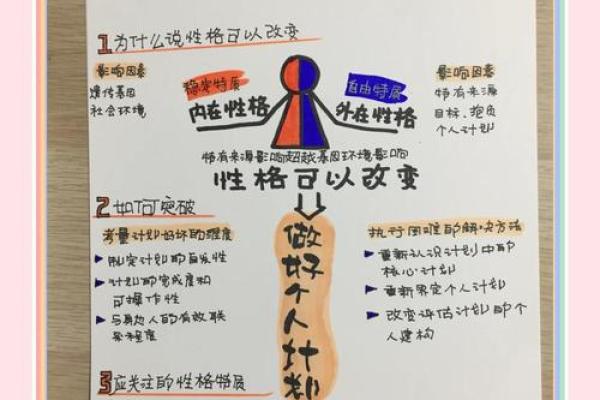 1 为什么说性格可以改变
影响因素
遗传基因
社会环境
稳定特质
内在性格
自由特质
外在性格
影响因素
特有来源
目标、抱负
个人计划
特有来源影响超越基因环境影响
性格可以改变
2 如何突破
考量计划好坏的维度
制定计划的自发性
计划的完成度和
可操作性
与身边人的有效联
系程度
做好个人计划
执行困难的解决方法
重新认识计划中的
核心计划
重新界定个人计划
改变评估计划的个
人建构
3 应关注的性格特质